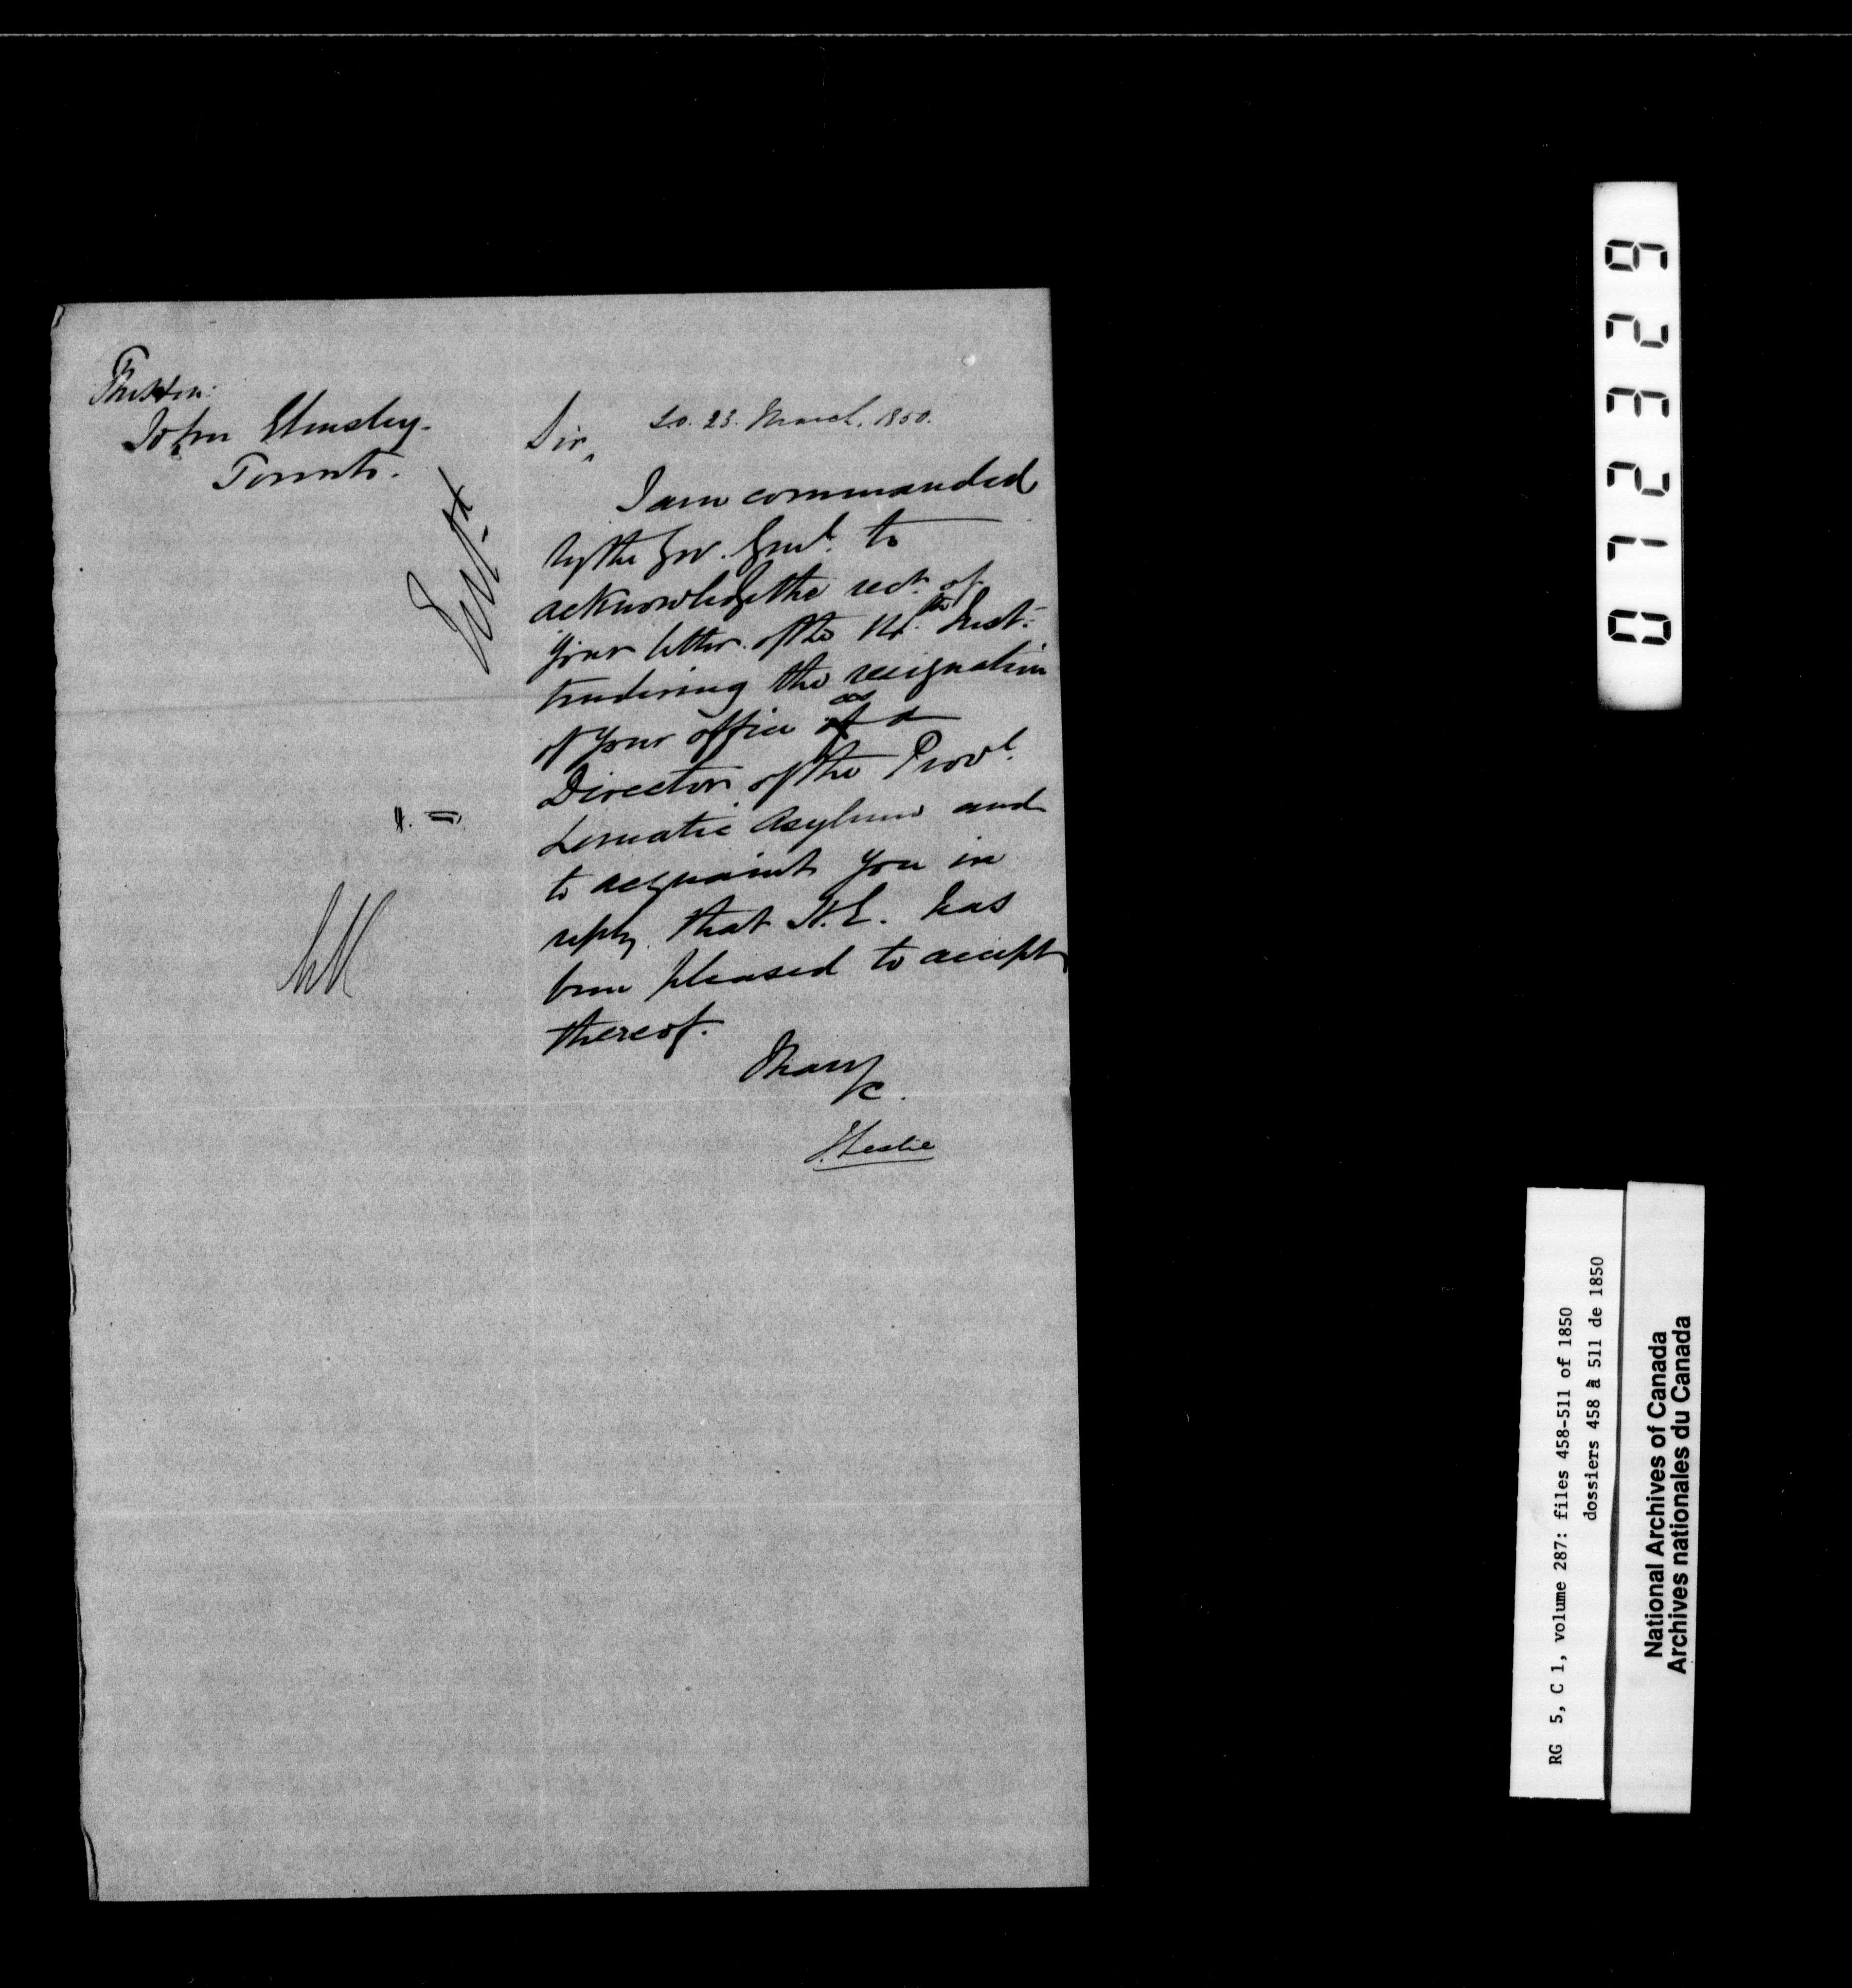 The Hon:
John Elmsley.
Toronto.
S.O. 23. March, 1850.
Sir,
I am commanded
by the Gov. Genl. to
acknowledge the rect. of
your letter of the 14th. Inst:
tendering the resignation
of your office as a
Director of the Provl.
Lunatic Asylum and
to acquaint you in
reply that H.E. has
been pleased to accept
thereof.
I have
&c.
J. Leslie
072329
RG 5, C 1, volume 287: files 458-511 of 1850
dossiers 458 à 511 de 1850
National Archives of Canada
Archives nationales du Canada